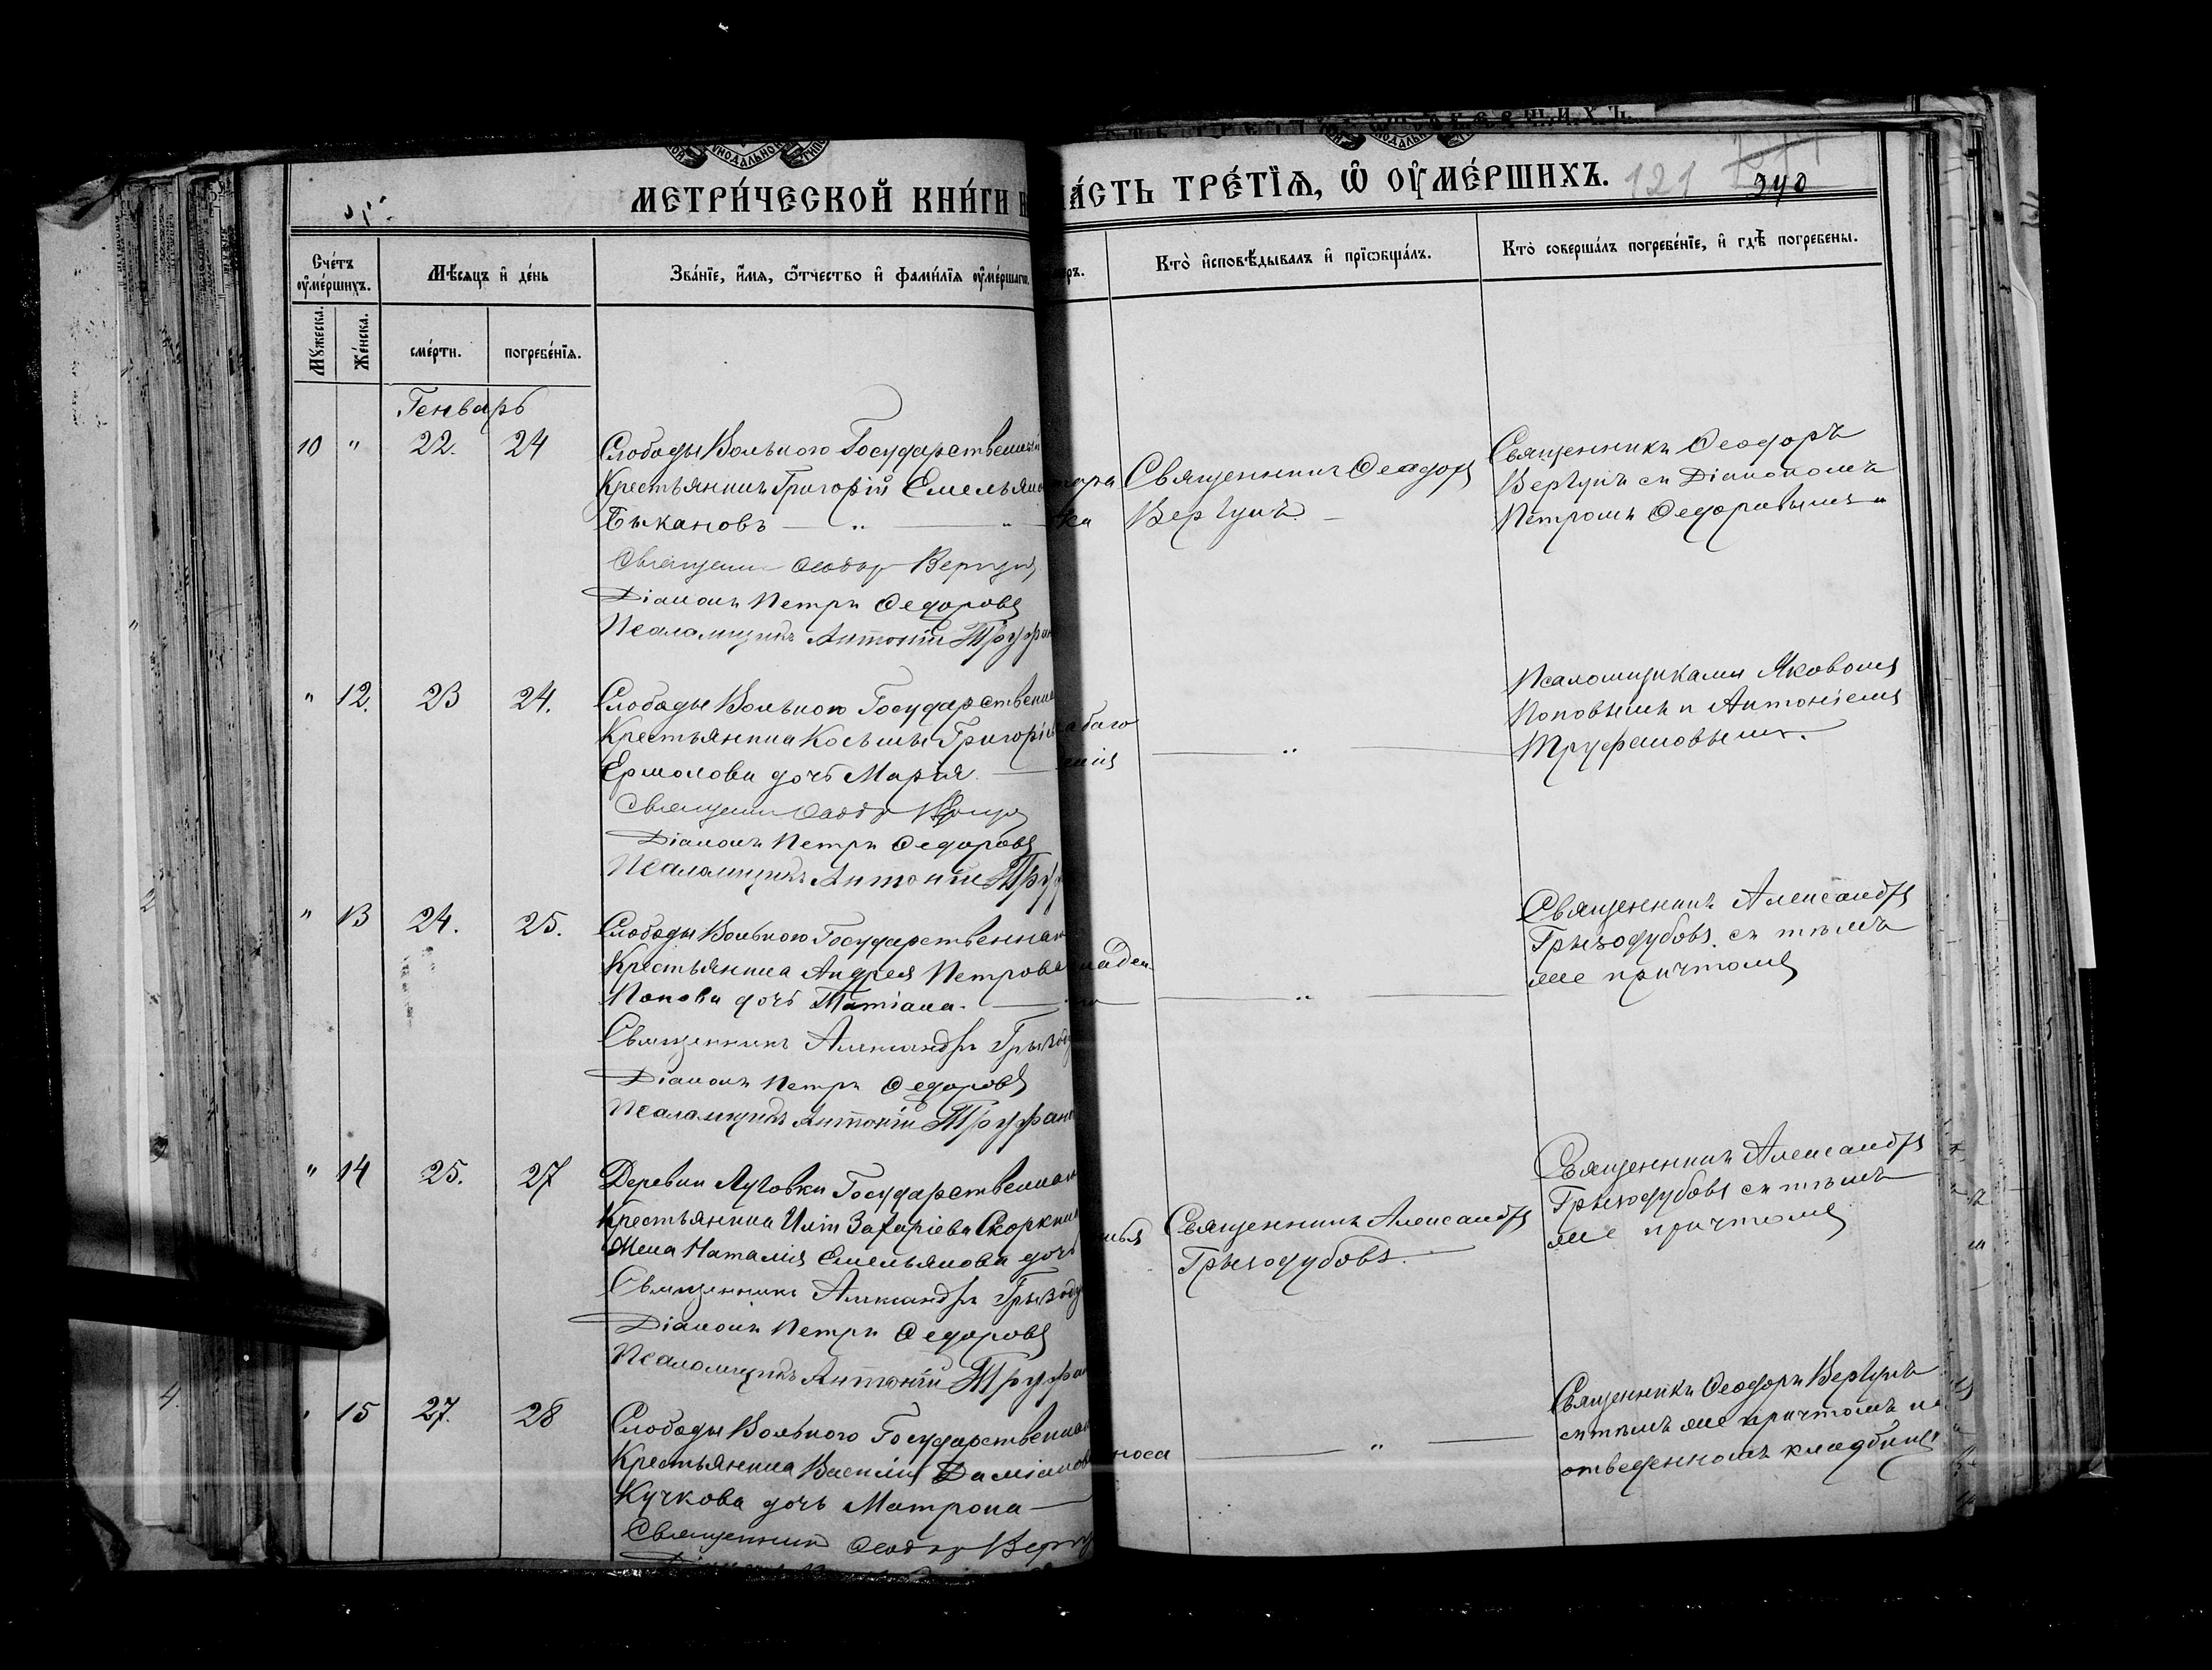 МЕТРИ́ЧЕСКОЙ КНИ́ГИ Н
А́СТЬ ТРЕ́ТЇѦ, Ѿ ОУ҆МЕ́РШИХЪ.
121
240
Сче́тъ оу҆ме́ршихъ.
Мѣ́сяцъ и҆ де́нь
Зва́нїе, и҆́мя, ѻ҆́тчество и҆ фами́лїя оу҆ме́ршагѡ.
Кто̀ и҆сповѣ́дывалъ и҆ прїѡбща́лъ.
Кто̀ соверша́лъ погребе́нїе, и҆ гдѣ̀ погребены.
Мꙋ́жеска.
Же́нска.
сме́рти.
погребе́нїя.
Генварь
10 " 22. 24
Слободы Вольного Государственный
Крестьянинъ Григорій Емельяно
Быкановъ — " "
Священникъ Ѳеодоръ Вергунъ
Діаконъ Петръ Ѳедоровъ
Псаломщикъ Антоній Труфан
Священникъ Ѳеодоръ
Вергунъ.
Священникъ Ѳеодоръ
Вергунъ съ Діакономъ
Петромъ Ѳедоровымъ и
" 12. 23 24.
Слободы Вольного Государственна
Крестьянина Косьмы Григорьев
Ермолова дочь Марія —
Священникъ Ѳеодоръ Вергунъ
Діаконъ Петръ Ѳедоровъ
Псаломщикъ Антоній Труф
абаго
— " —
Псаломщиками Яковомъ
Поповымъ и Антоніемъ
Труфановымъ.
" 13 24. 25.
Слободы Вольного Государственнаг
Крестьянина Андрея Петрова
Попова дочь Татіана. —
Священникъ Александръ Грызоду
Діаконъ Петръ Ѳедоровъ
Псаломщикъ Антоній Труфан
ладен
— " —
Священникъ Александръ
Грызодубовъ. съ тѣмъ
же причтомъ
" 14 25. 27
Деревни Луговки Государственнаг
Крестьянина Иліи Захаріева Скоркина
Жена Наталія Емельянова дочь
Священникъ Александръ Грызоду
Діаконъ Петръ Ѳедоровъ
Псаломщикъ Антоній Труфан
Священникъ Александръ
Грызодубовъ.
Священникъ Александръ
Грызодубовъ съ тѣмъ
же причтомъ
" 15 27. 28
Слободы Вольного Государственнаг
Крестьянина Василія Даміанова
Кучкова дочь Матрона —
Священникъ Ѳеодоръ Вергу
носа
— " —
Священникъ Ѳеодоръ Вергунъ
съ тѣмъ же причтомъ на
отведенномъ кладбищѣ